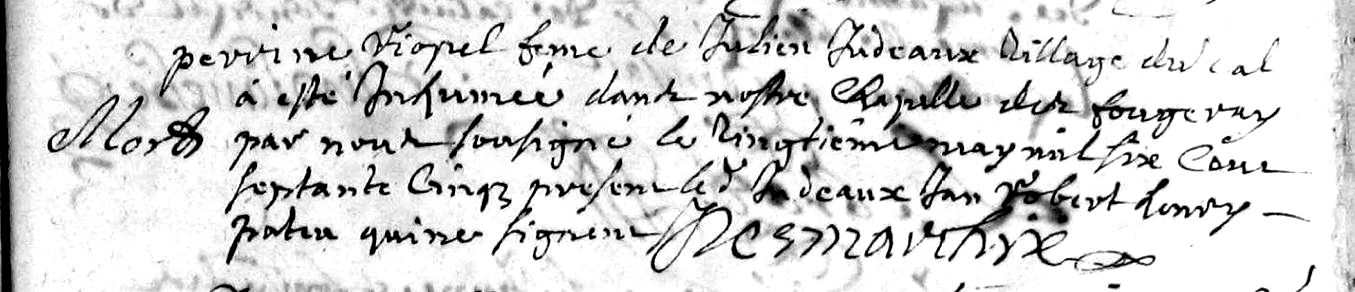 perrine Riopel feme de Julien Judeaux Village du val
a esté Inhumée dans nostre Chapelle des fougeray
Mort par nous sousigné le Vingtieme may mil six Cens
septante Cinq presens led Judeaux Jan Robert henry
qui ne signent Desmarchix